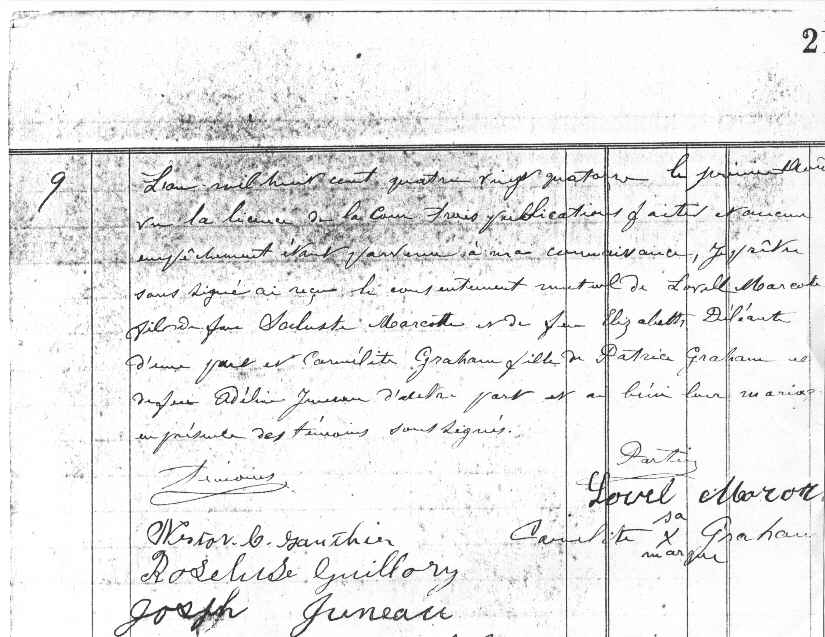 21
9 L'an mil huit cent quatre vingt quatorze le premier Août
vu la licence de la Cour Trois publications faites et aucun
empêchement étant parvenu à ma connaissance, Je prêtre
soussigné ai reçu le consentement mutuel de Lovell Marcotte
fils de feu Saluste Marcotte et de feu Elizabeth
d'une part et Carmélite Graham fille de Patrice Graham et
de feu Adélia Juneau d'autre part et ai béni leur mariage
en présence des témoins soussignés.
Témoins
Parties
Lovel
Nestor. C. Gauthier
Carmélite sa X marque Graham
Roseluse Guillory
Joseph Juneau